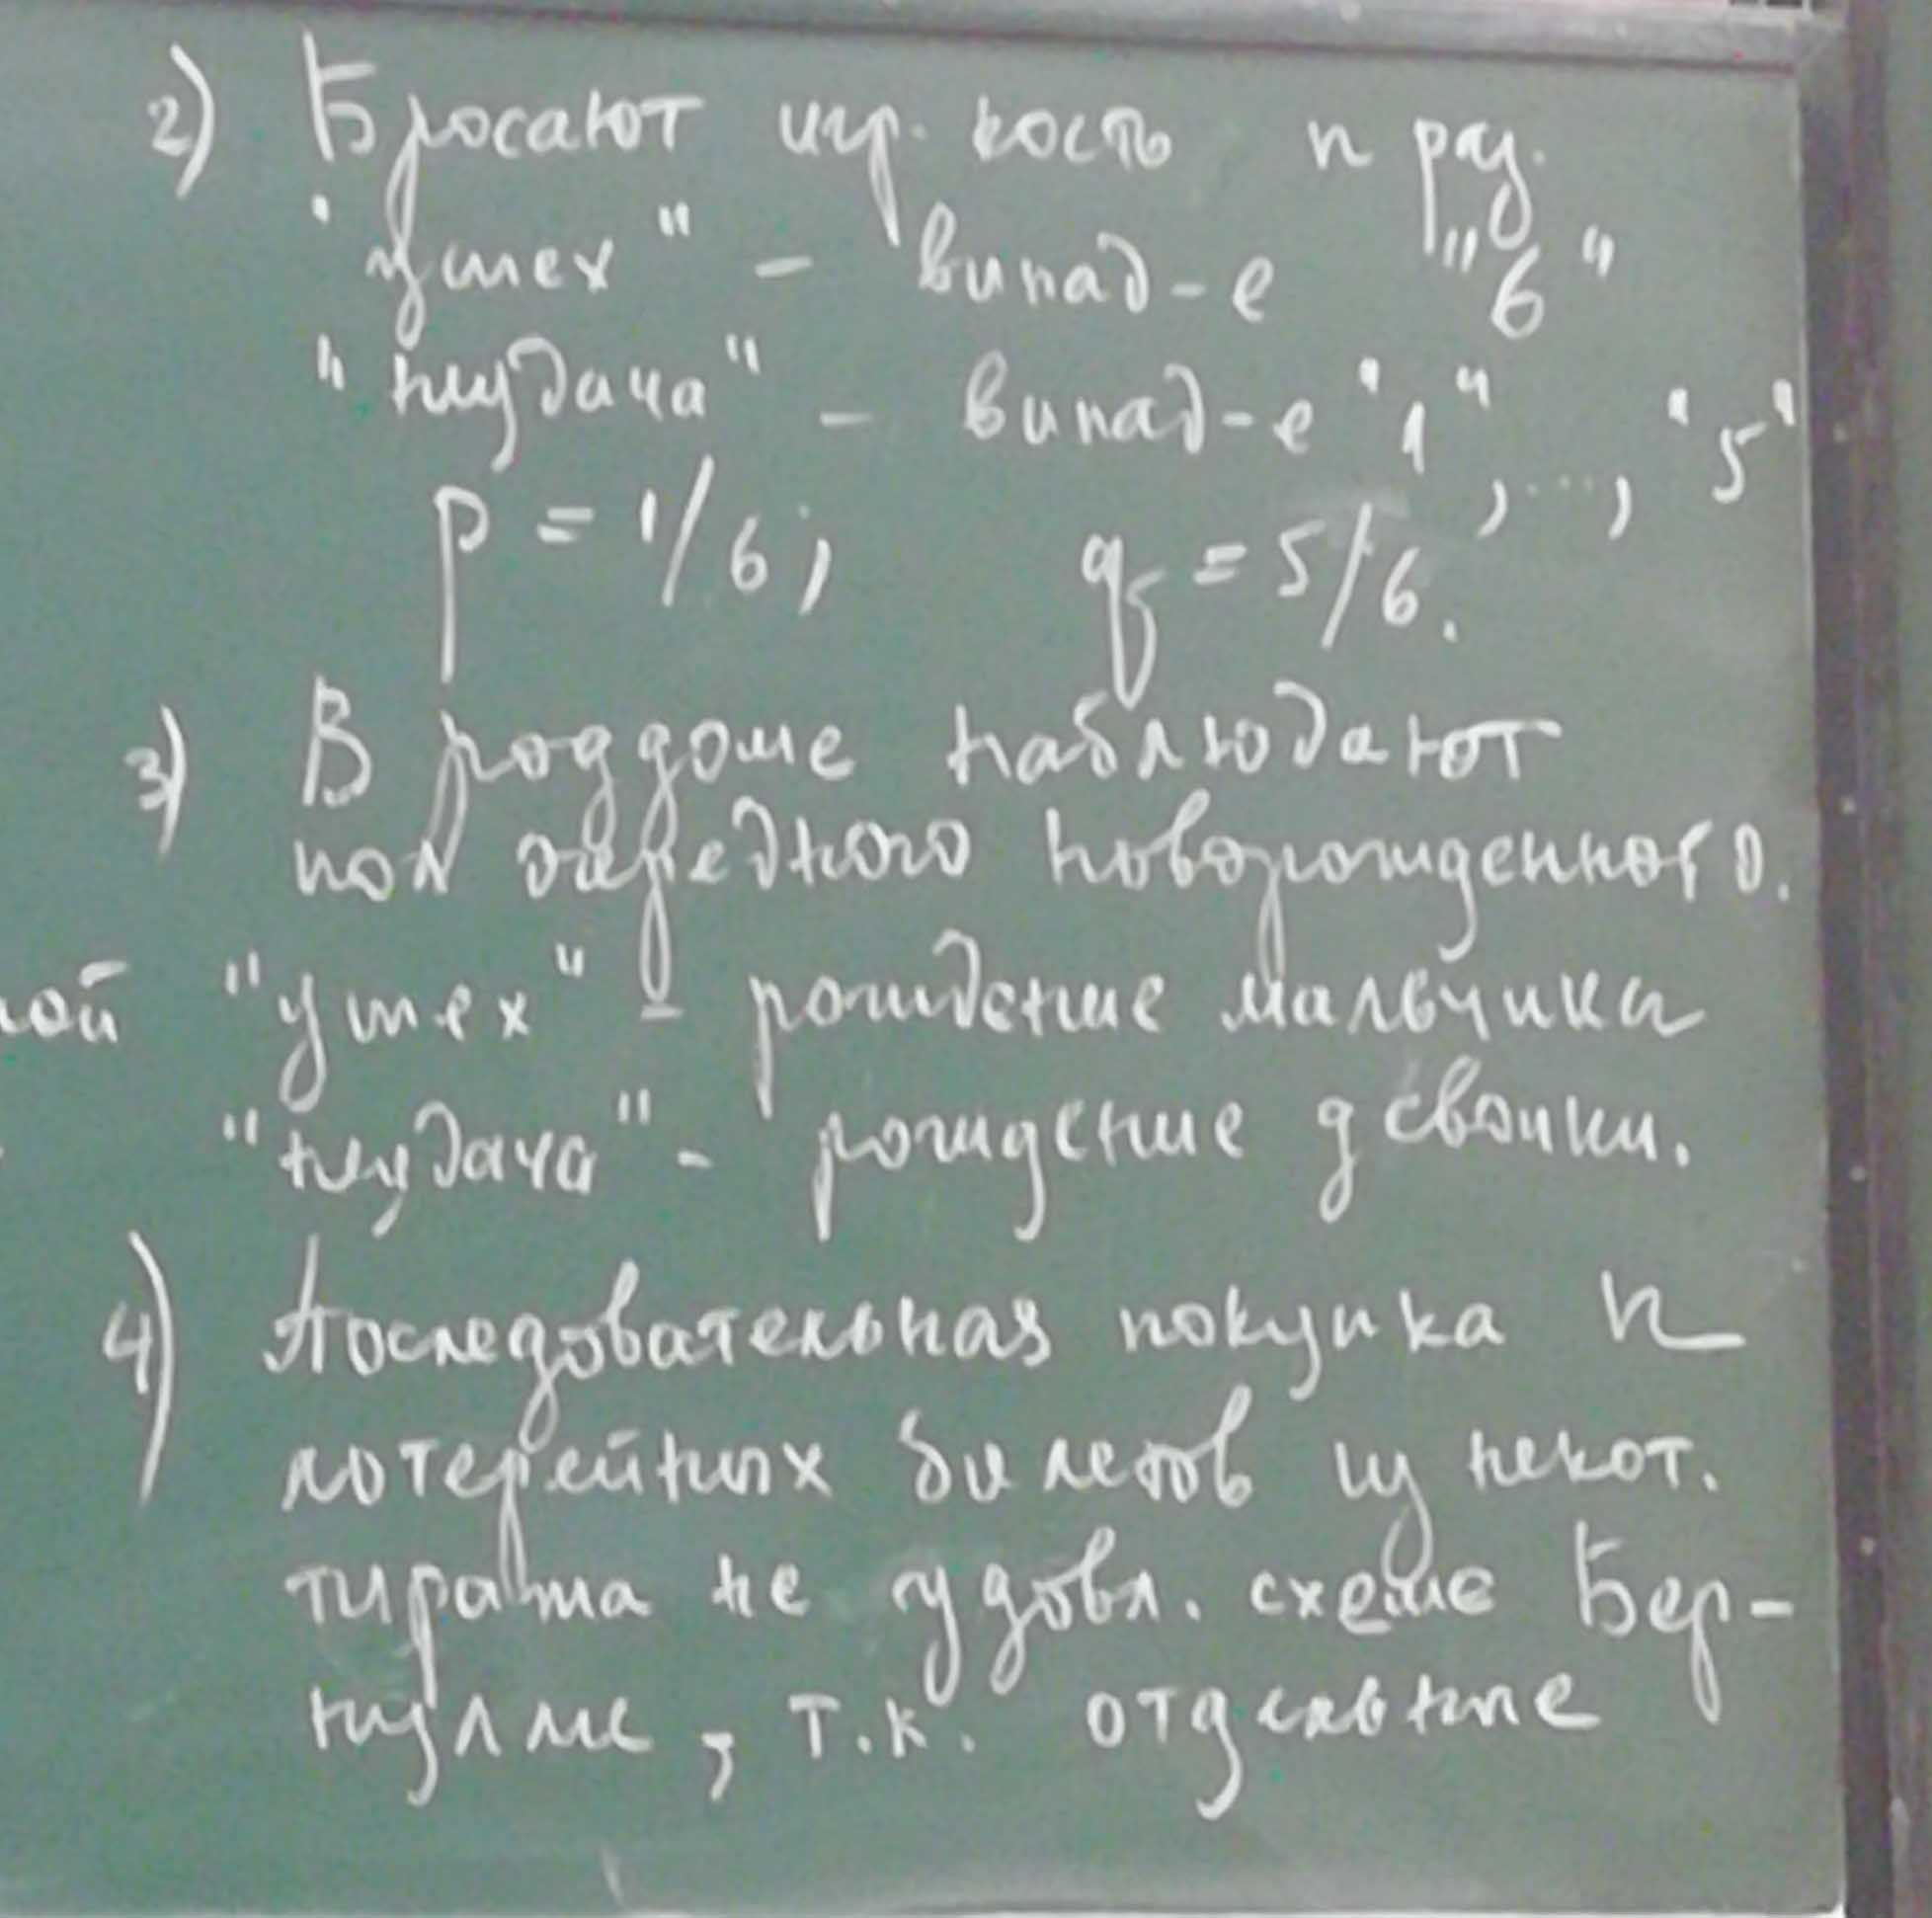 2) Бросают игр. кость n раз.
"успех" - выпад-е "6"
"неудача" - выпад-е "1", ..., "5"
p = 1/6; q = 5/6.
3) В роддоме наблюдают
пол очередного новорожденного.
"успех" - рождение мальчика
"неудача" - рождение девочки.
4) Последовательная покупка n
лотерейных билетов из некот.
тиража не удовл. схеме Бер-
нулли, т.к. отдельные